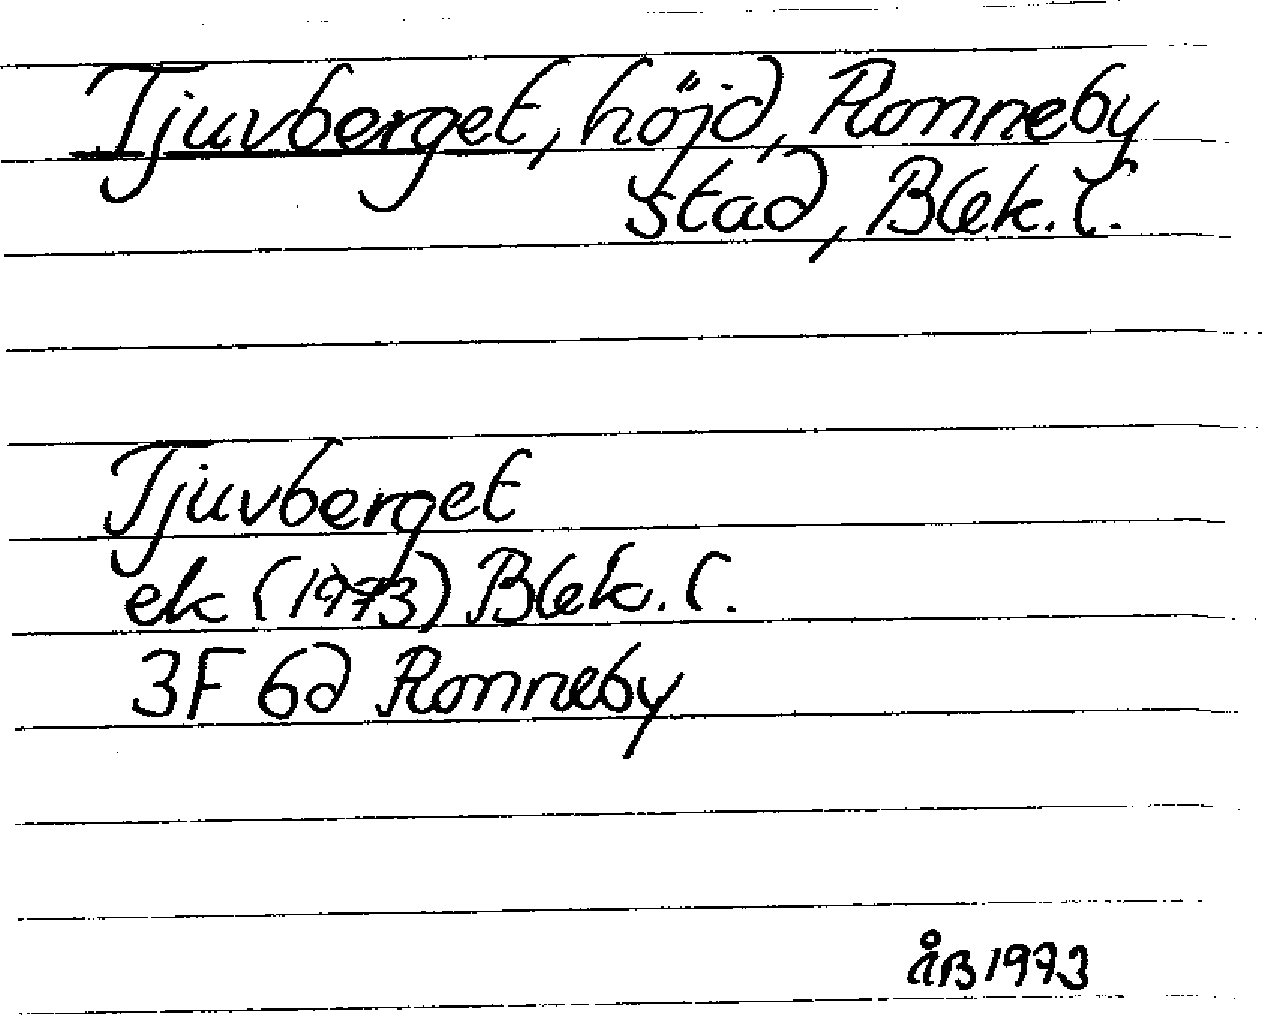 Tjuvberget, höjd, Ronneby
stad, Blek. l.
Tjuvberget
ek (1973) Blek. l.
3F 6d Ronneby
ÅB 1973